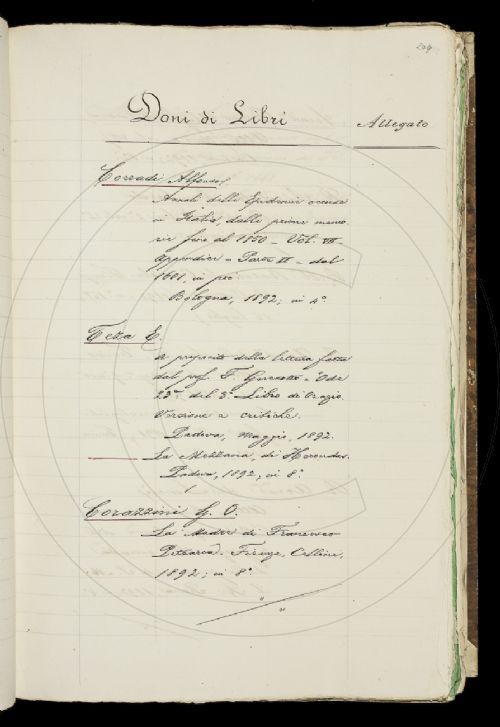 204
Doni di Libri
Allegato
Corradi Alfonso
Annali delle Epidemie occorse
in Italia, dalle prime memo
rie fino al 1850 - Vol. VII -
Appendice - Parte II - dal
1601, in poi
Bologna, 1892; in 4°
Teza E.
A proposito della lettura fatta
dal prof. F. - "Ode
23ª del 3° Libro di Orazio.
Versione e critiche.
Padova, Maggio, 1892.
La Mezzana, di Herondas.
Padova, 1892; in 8°
Corazzini G. O.
La Madre di Francesco
Petrarca. Firenze, Cellini,
1892; in 8°
" "